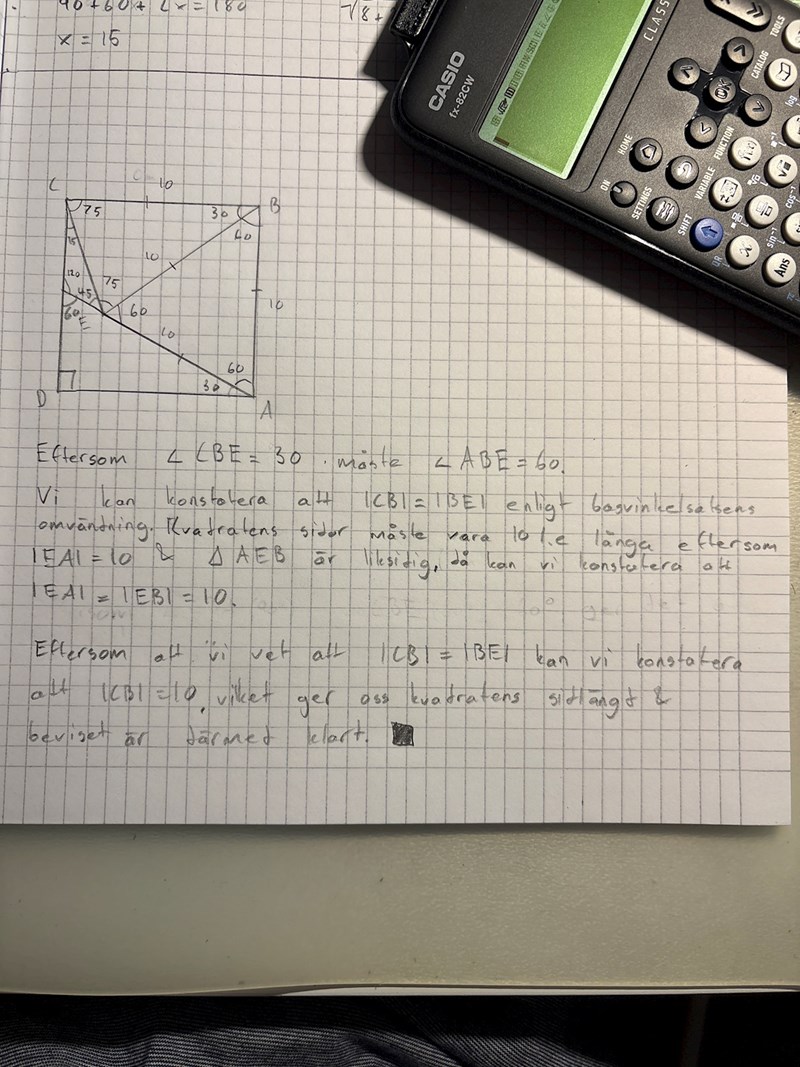 90+60+2x=180
x = 15
78+
CASIO
fx-82CW
CLASS
HOME
ON
SETTINGS
SHIFT
VARIABLE
FUNCTION
CATALOG
TOOLS
OK
Ans
sin⁻¹
cos⁻¹
log
C 10 B
75 30
60
15
10
120 75
45 60 10
60 E
10
60
30
D A
Eftersom ∠ CBE = 30 . måste ∠ ABE = 60.
Vi kan konstatera att |CB| = |BE| enligt basvinkelsatsens
omvändning. Kvadratens sidor måste vara 10 l.e långa eftersom
|EA| = 10 & △ AEB är liksidig, då kan vi konstatera att
|EA| = |EB| = 10.
Eftersom att vi vet att |CB| = |BE| kan vi konstatera
att |CB| = 10, vilket ger oss kvadratens sidlängd &
beviset är därmed klart. ■